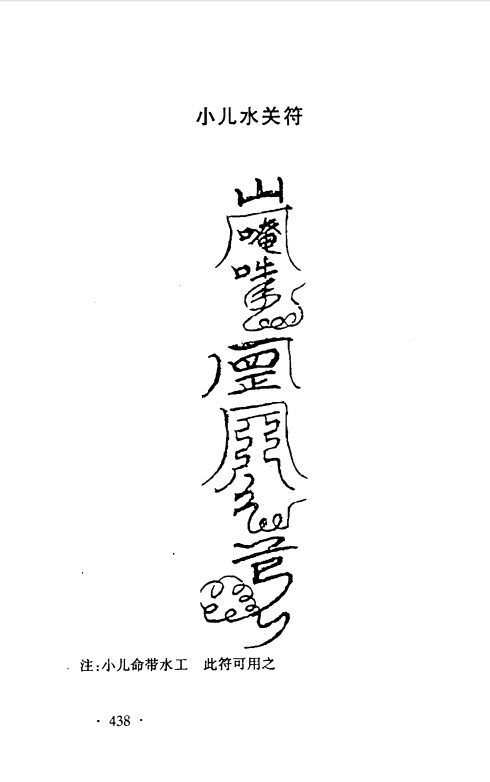 小儿水关符
山
唵
罡
注:小儿命带水工 此符可用之
· 438 ·